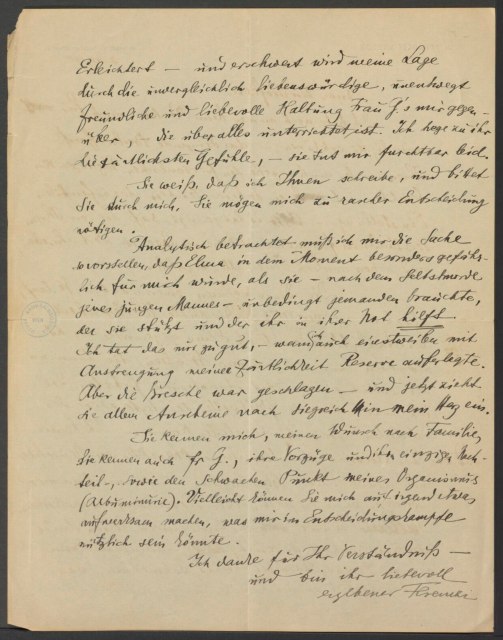 Erleichtert – und erschwert wird meine Lage
durch die unvergleichlich liebenswürdige, unentwegt
freundliche und liebevolle Haltung Frau G's mir gegen-
über, – die über alles unterrichtet ist. Ich hege zu ihr
die zärtlichsten Gefühle, – sie tut mir furchtbar leid.
Sie weiß, daß ich Ihnen schreibe, und bittet
Sie durch mich, Sie mögen mich zu rascher Entscheidung
nötigen.
Analytisch betrachtet muß ich mir die Sache
so vorstellen, daß Elma in dem Moment besonders gefähr-
lich für mich wurde, als sie – nach dem Selbstmorde
jenes jungen Mannes – unbedingt jemanden brauchte,
der sie stützt und der ihr in ihrer Not hilft.
Ich tat das nur zu gut, – wenn auch einstweilen mit
Anstrengung meiner Zärtlichkeit Reserve auferlegte.
Aber die Bresche war geschlagen – und jetzt zieht
sie allem Anscheine nach siegreich in mein Herz ein.
Sie kennen mich, meinen Wunsch nach Familie,
Sie kennen auch Fr G., ihre Vorzüge und ihren einzigen Nach-
teil –, sowie den schwachen Punkt meines Organismus
(Albuminurie). Vielleicht können Sie mich auf irgend etwas
aufmerksam machen, was mir im Entscheidungskampfe
nützlich sein könnte.
Ich danke für Ihr Verständniß –
und bin ihr liebevoll
ergebener